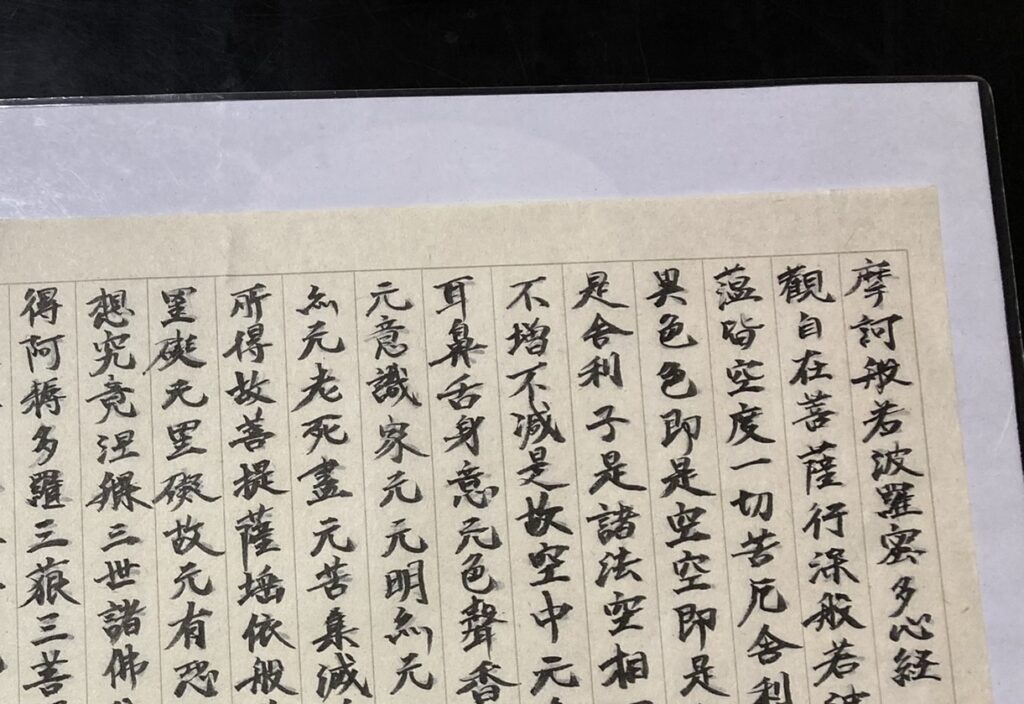 摩訶般若波羅蜜多心経
觀自在菩薩行深般若波
薀皆空度一切苦厄舍利
異色色即是空空即是
是舍利子是諸法空相
不增不減是故空中元
耳鼻舌身意元色聲香
元意識界元元明亦元
亦元老死盡元苦集滅
所得故菩提薩埵依般
罣礙元罣礙故元有恐
想究竟涅槃三世諸佛
得阿耨多羅三藐三菩